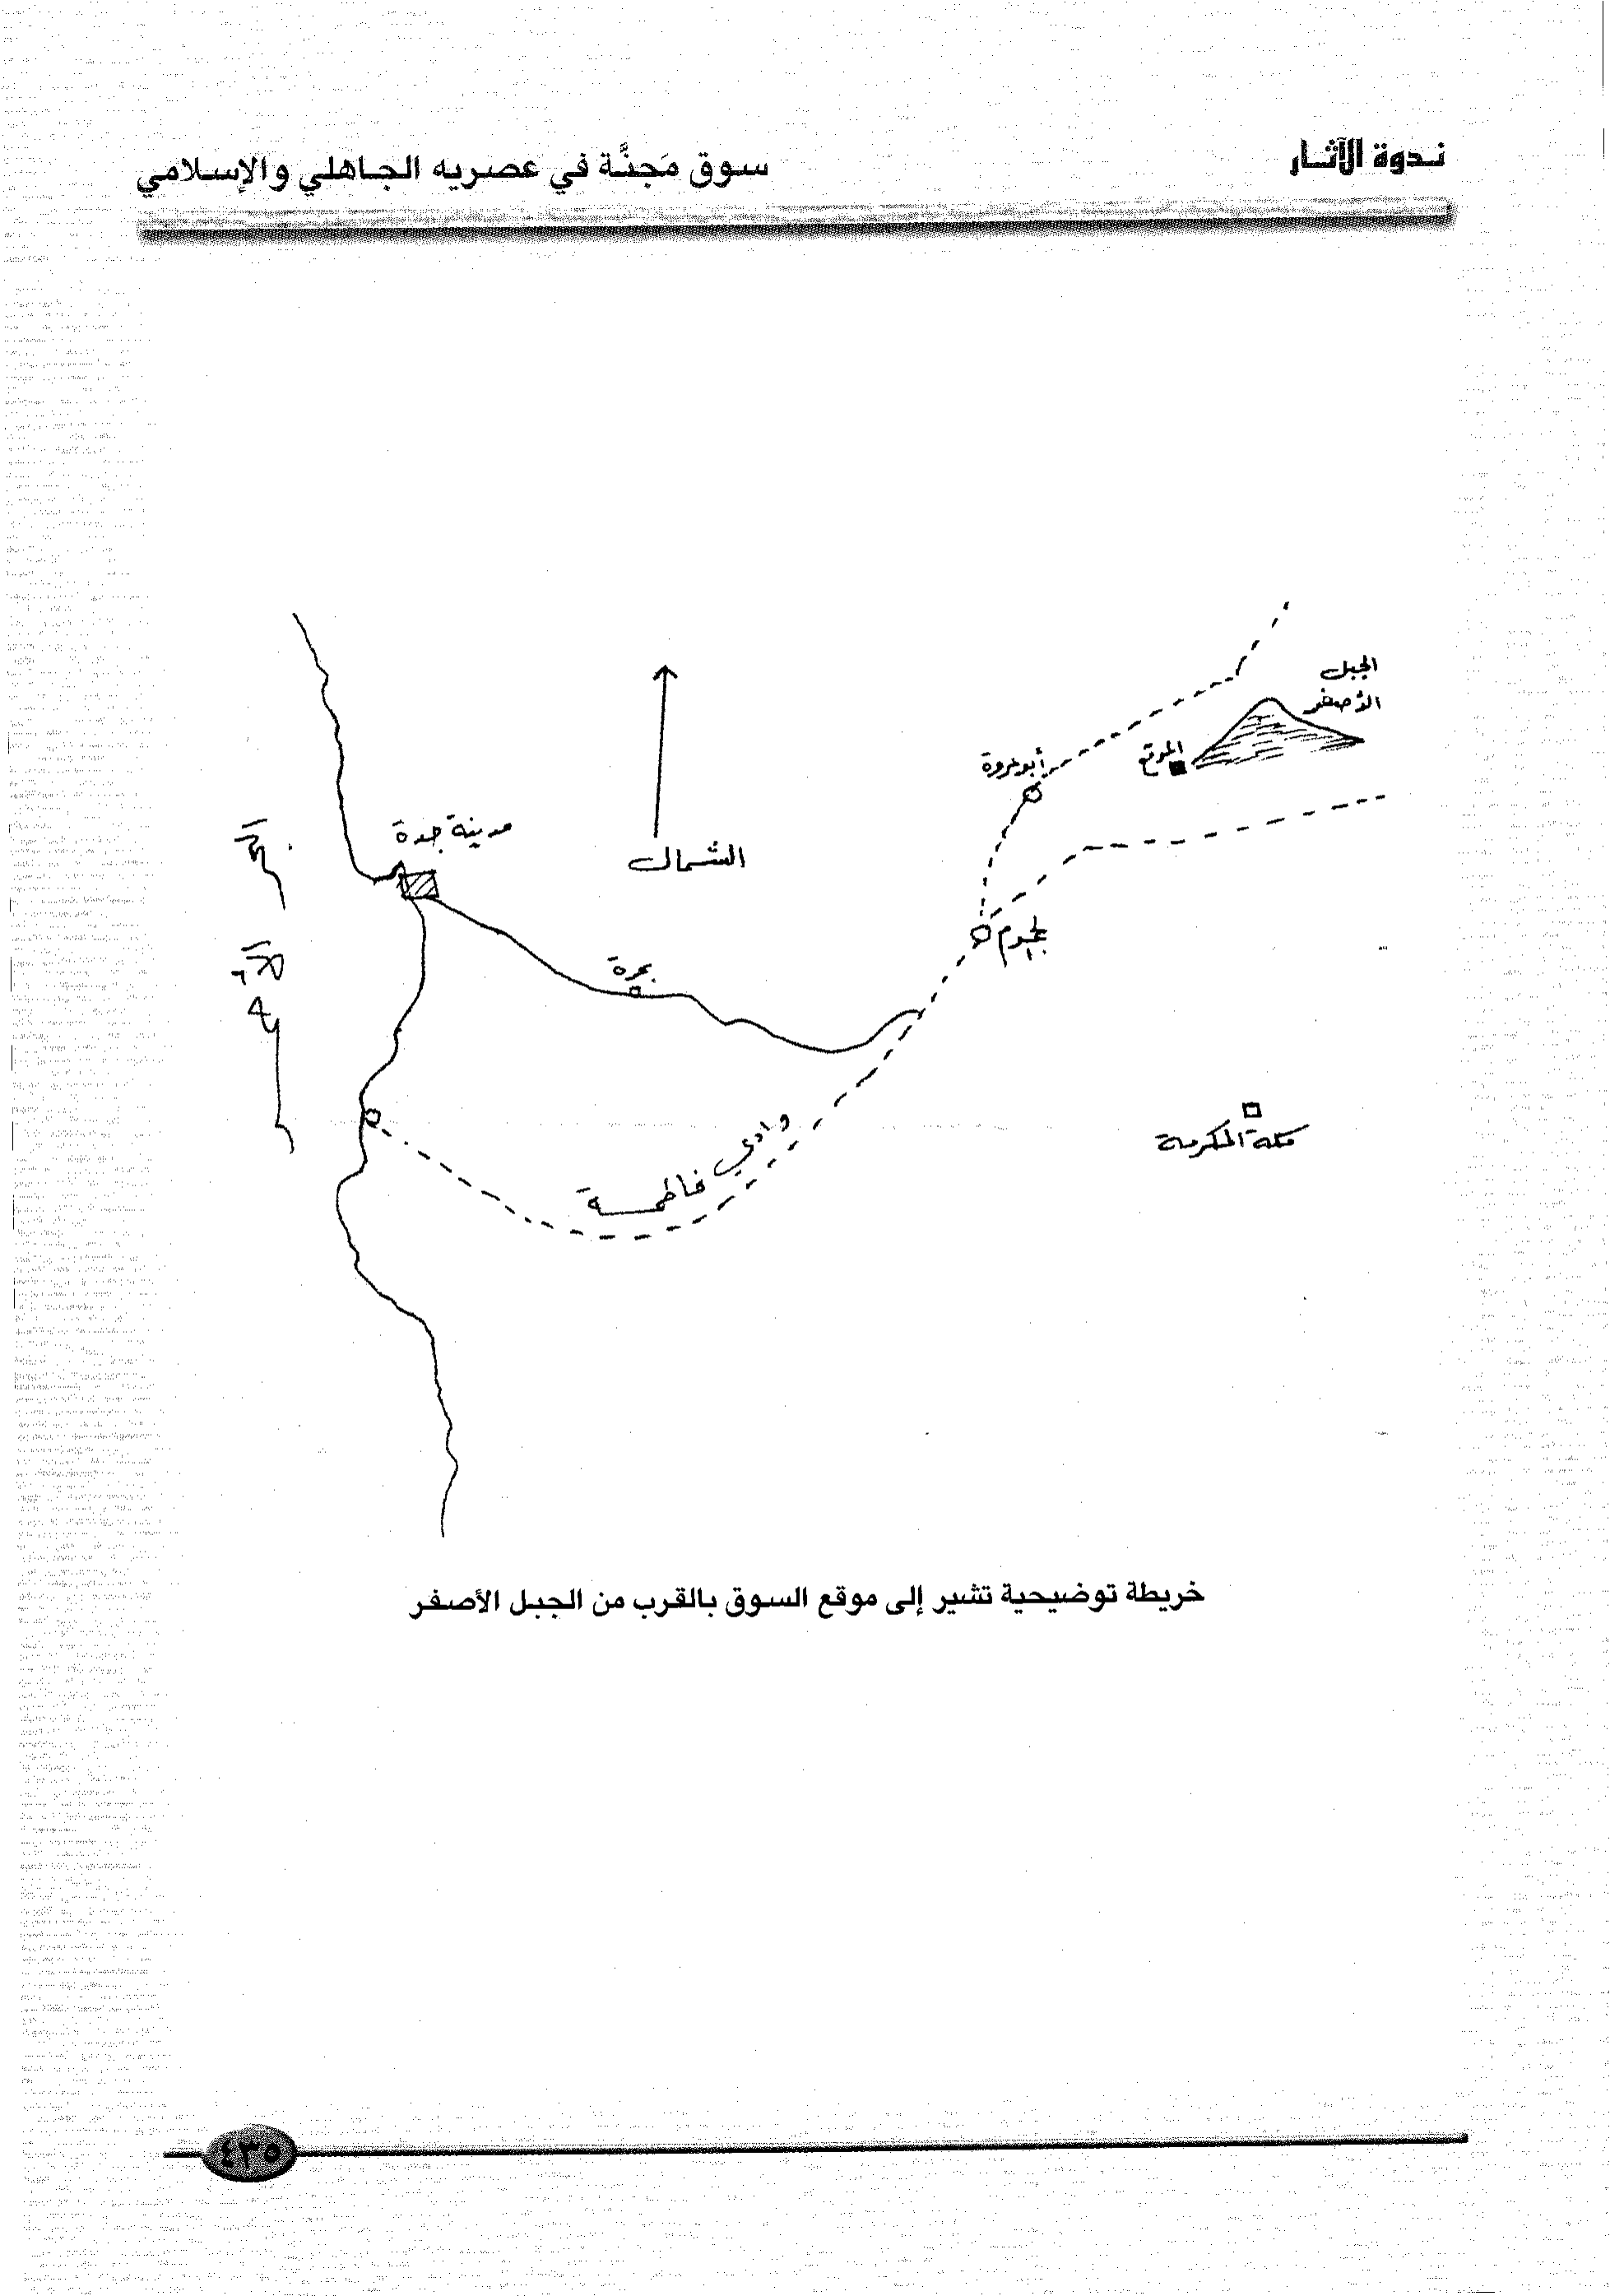 ندوة الآثار
سوق مَجنَّة في عصريه الجاهلي والإسلامي
الجبل
الأصفر
الموقع
أبو عروة
الجموم
الشمال
مدينة جدة
بحرة
وادي فاطمة
مكة المكرمة
خريطة توضيحية تشير إلى موقع السوق بالقرب من الجبل الأصفر
٤٣٥